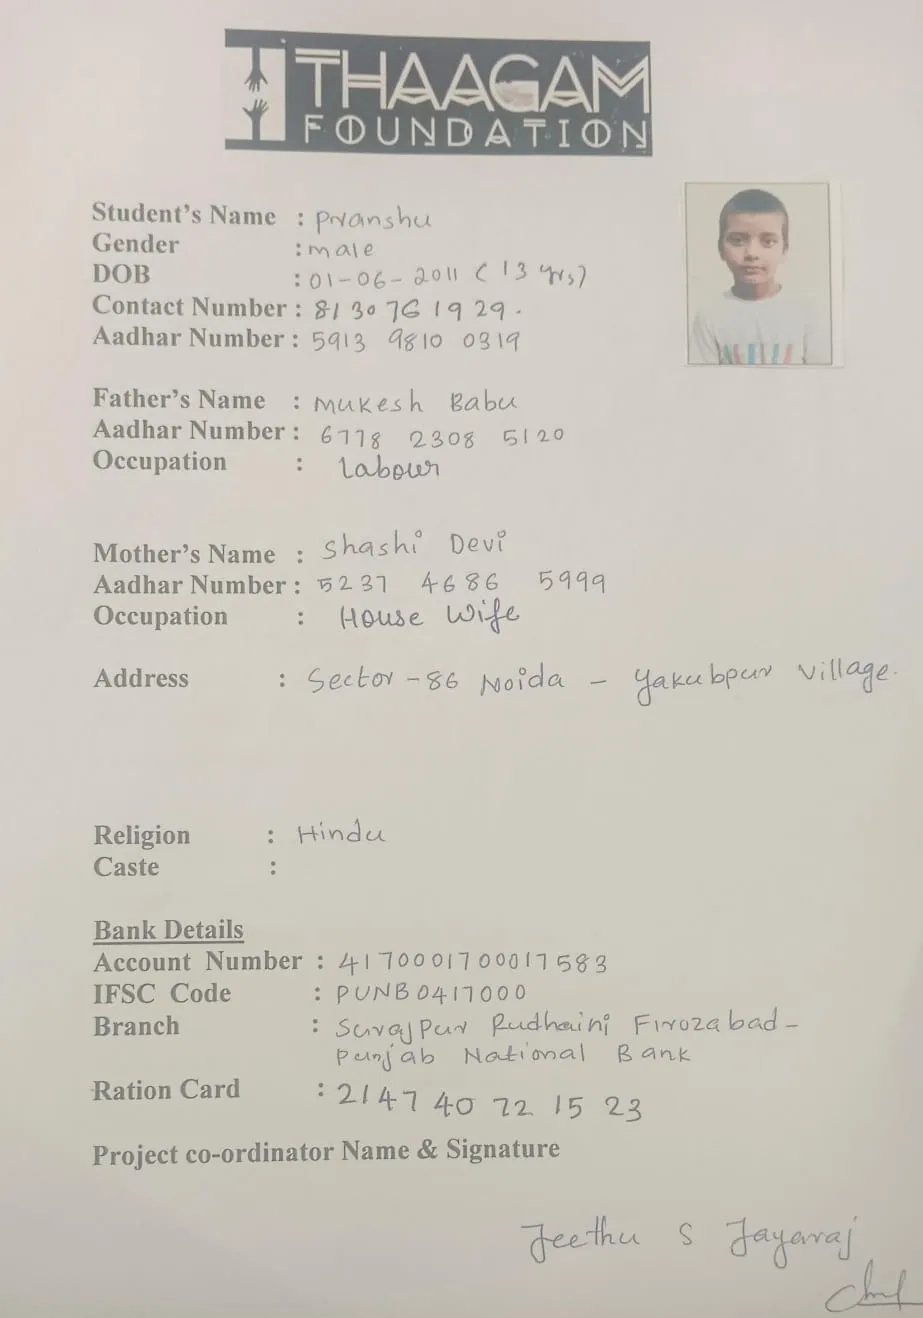 THAAGAM
FOUNDATION
Student's Name : Pranshu
Gender : male
DOB : 01-06-2011 (13 yrs)
Contact Number : 81 30 76 19 29.
Aadhar Number : 5913 9810 0319
Father's Name : Mukesh Babu
Aadhar Number : 6778 2308 5120
Occupation : Labour
Mother's Name : Shashi Devi
Aadhar Number : 5237 4686 5999
Occupation : House Wife
Address : Sector -86 Noida - Yakubpur Village.
Religion : Hindu
Caste :
Bank Details
Account Number : 4170001700017583
IFSC Code : PUNB0417000
Branch : Surajpur Rudhaini Firozabad-
Punjab National Bank
Ration Card : 2147 40 72 15 23
Project co-ordinator Name & Signature
Jeethu S Jayaraj